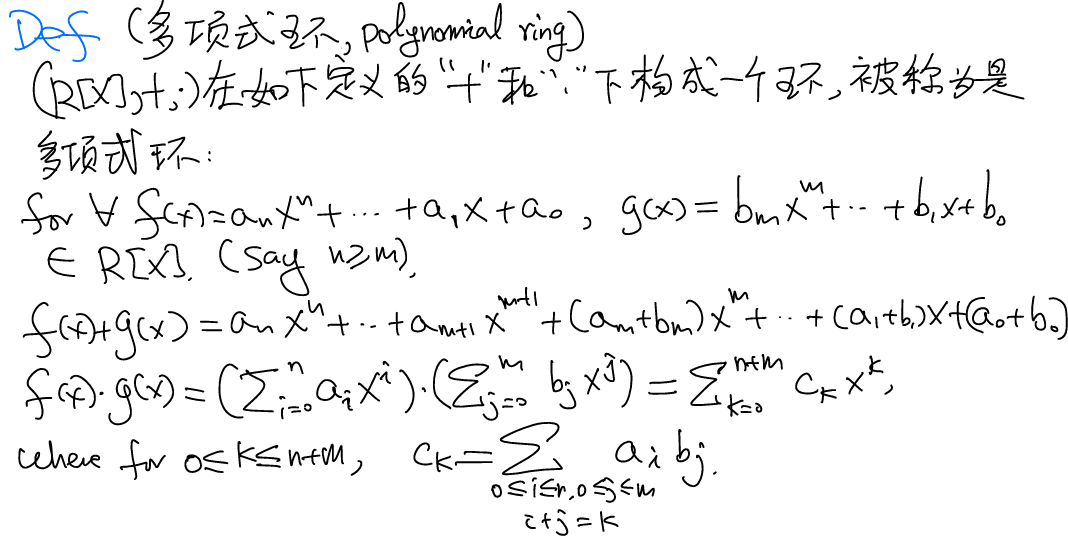 Def (多项式环, polynomial ring)
(R[X],+,·)在如下定义的“+”和“·”下构成一个环,被称为是
多项式环:
for ∀ f(x)=aₙxⁿ+⋯+a₁x+a₀, g(x)=bₘxᵐ+⋯+b₁x+b₀
∈ R[X]. (say n≥m),
f(x)+g(x)=aₙxⁿ+⋯+aₘ₊₁xᵐ⁺¹+(aₘ+bₘ)xᵐ+⋯+(a₁+b₁)x+(a₀+b₀)
f(x)·g(x)=(∑ᵢ₌₀ⁿ aᵢxⁱ)·(∑ⱼ₌₀ᵐ bⱼxʲ)=∑ₖ₌₀ⁿ⁺ᵐ cₖxᵏ,
where for 0≤k≤n+m, cₖ=∑ aᵢbⱼ.
0≤i≤n,0≤j≤m
i+j=k